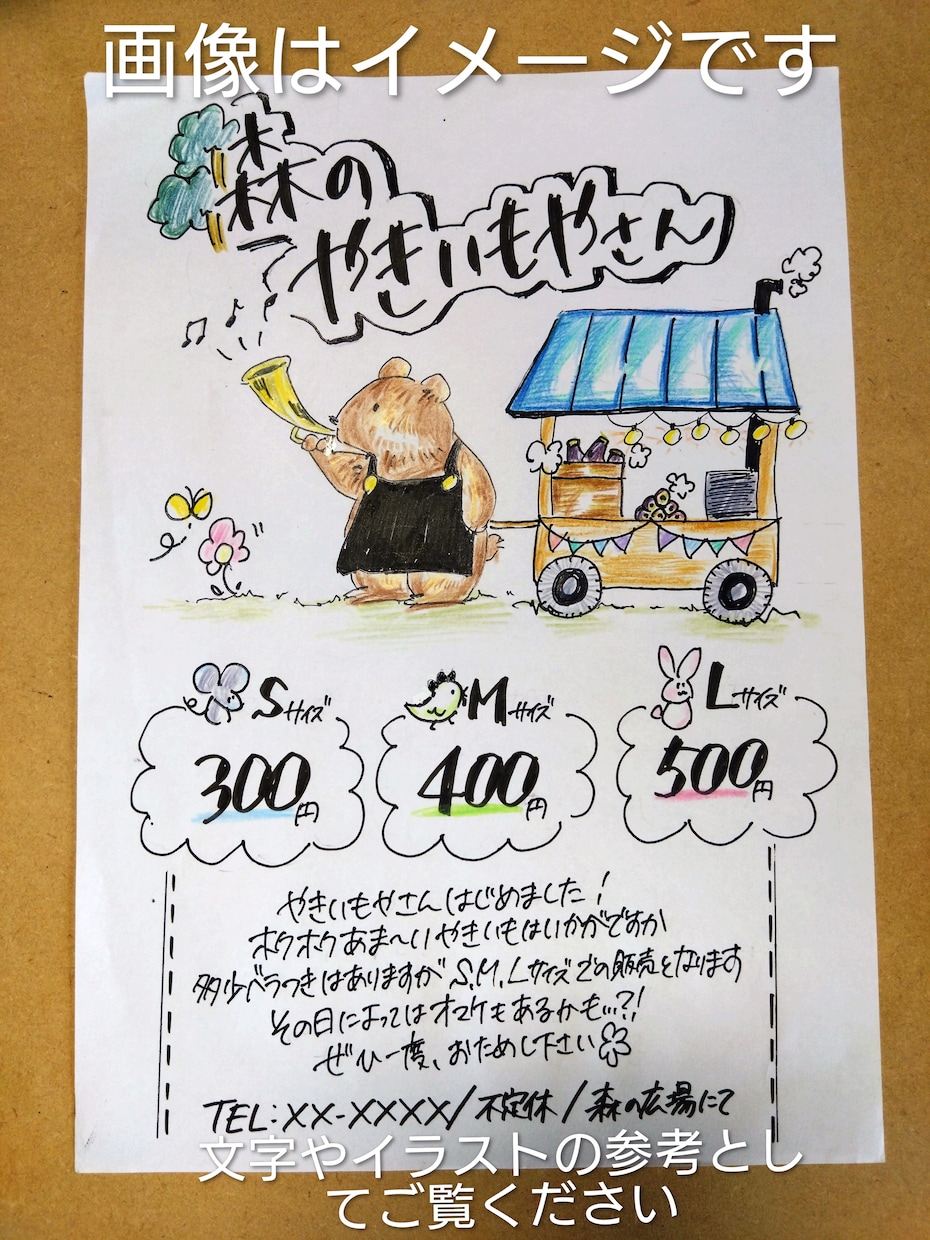 画像はイメージです
森の
やきいもやさん
Sサイズ
300円
Mサイズ
400円
Lサイズ
500円
やきいもやさんはじめました!
ホクホクあま〜いやきいもはいかがですか
多少バラつきはありますが S,M,Lサイズでの販売となります
その日によってはオマケもあるかも...?!
ぜひ一度、おためし下さい
TEL:XX-XXXX/不定休/森の広場にて
文字やイラストの参考とし
てご覧ください